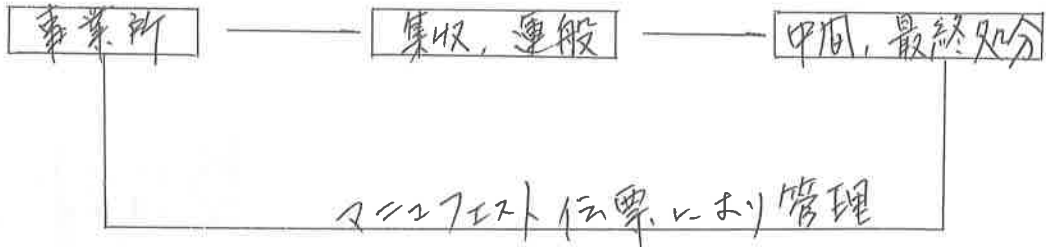 事業所
集収,運般
中間,最終処分
マニフェスト伝票により管理